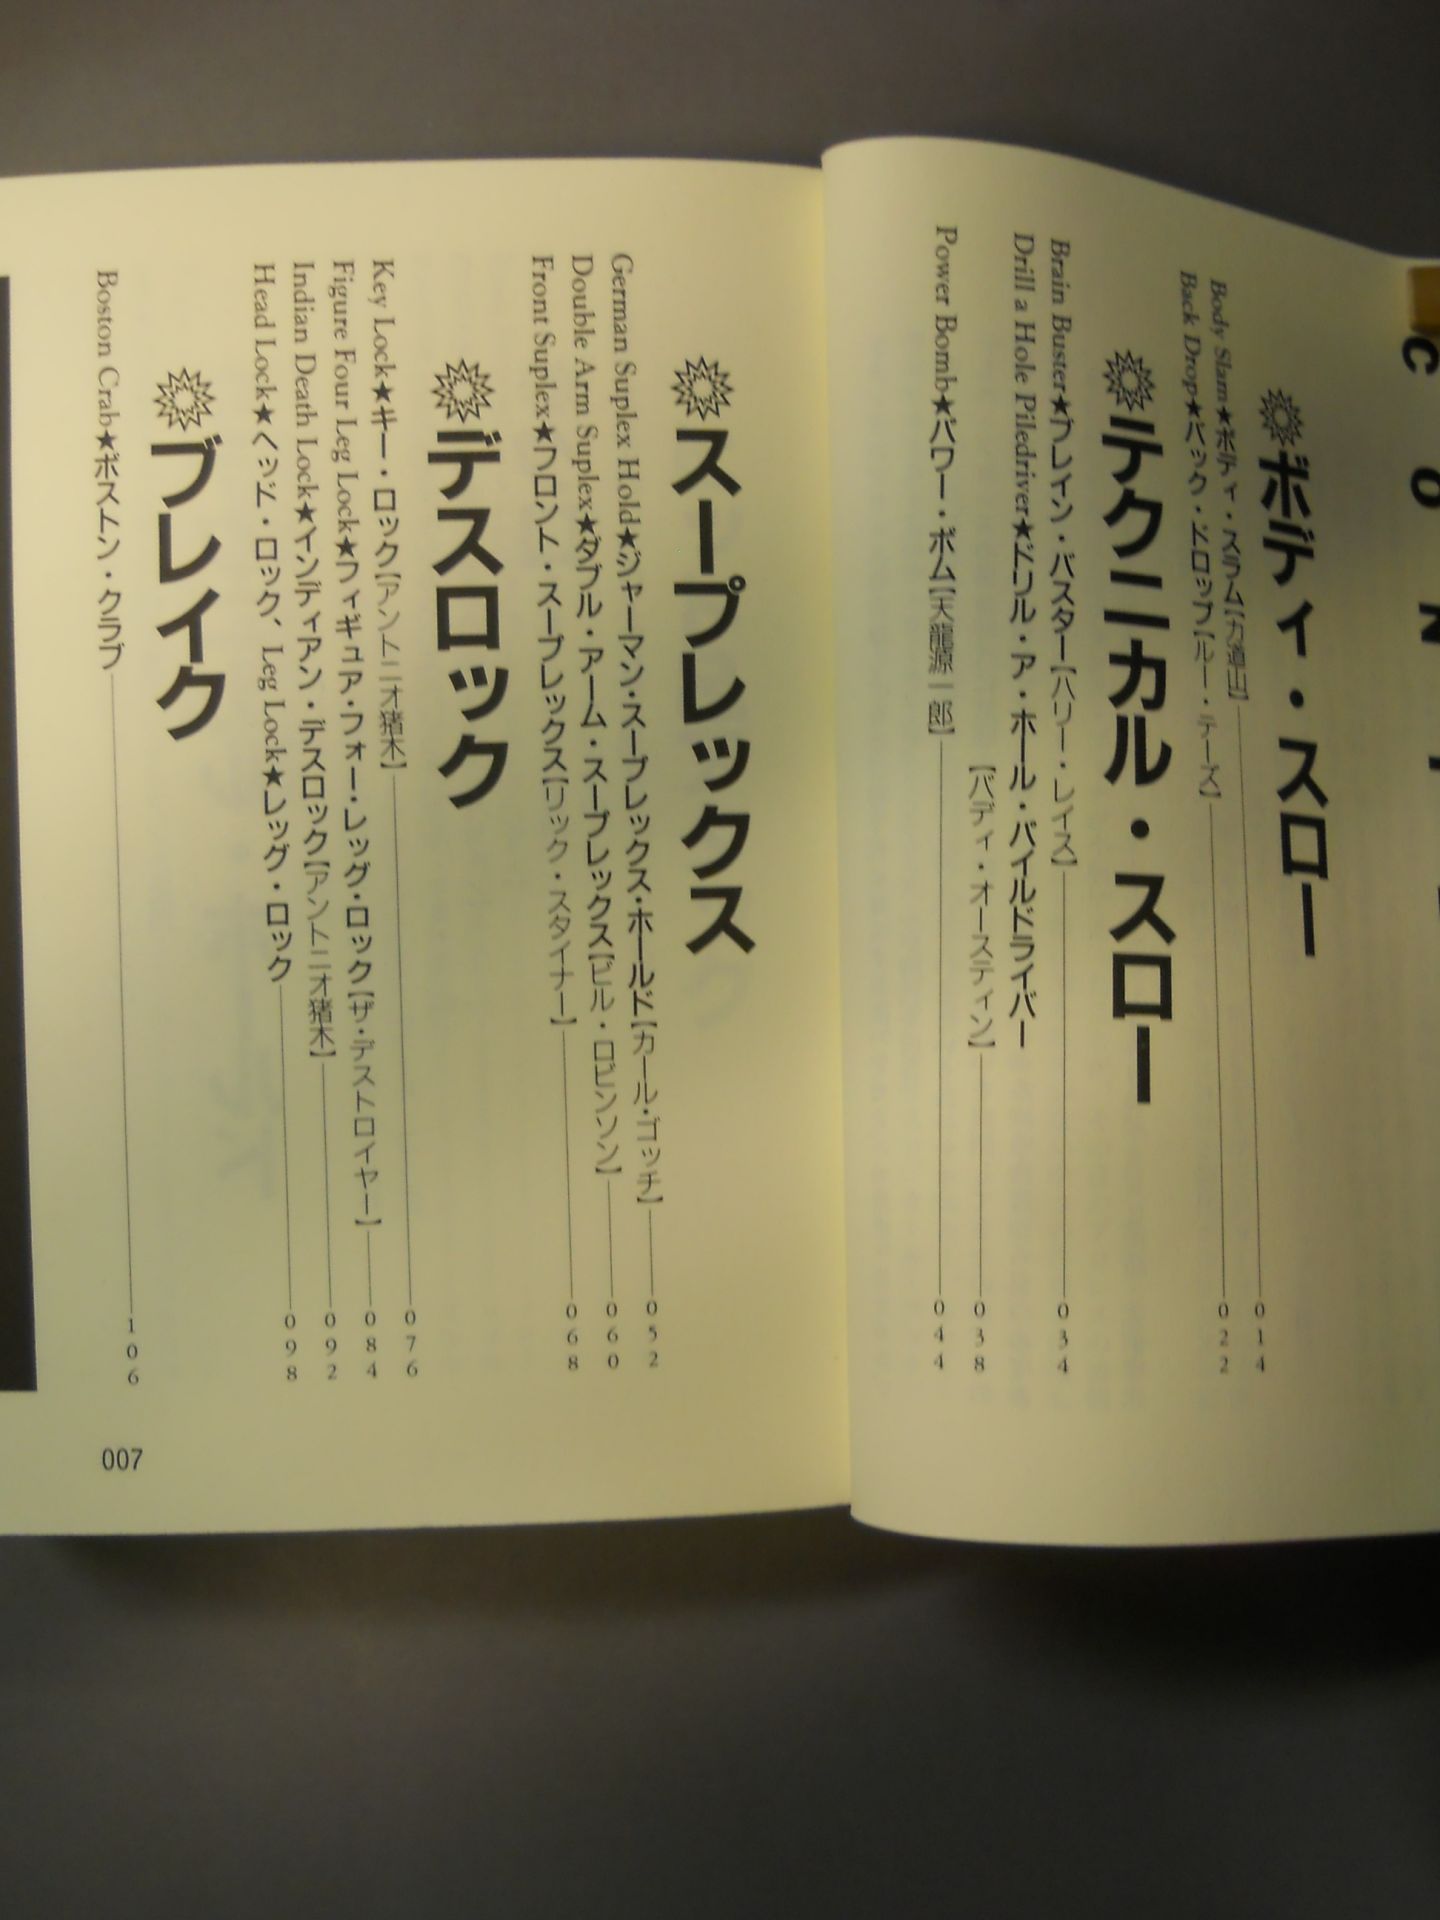 CON
ボディ・スロー
Body Slam★ボディ・スラム【力道山】014
Back Drop★バック・ドロップ【ルー・テーズ】022
テクニカル・スロー
Brain Buster★ブレイン・バスター【ハリー・レイス】034
Drill a Hole Piledriver★ドリル・ア・ホール・パイルドライバー
【バディ・オースティン】038
Power Bomb★パワー・ボム【天龍源一郎】044
スープレックス
German Suplex Hold★ジャーマン・スープレックス・ホールド【カール・ゴッチ】052
Double Arm Suplex★ダブル・アーム・スープレックス【ビル・ロビンソン】060
Front Suplex★フロント・スープレックス【リック・スタイナー】068
デスロック
Key Lock★キー・ロック【アントニオ猪木】076
Figure Four Leg Lock★フィギュア・フォー・レッグ・ロック【ザ・デストロイヤー】084
Indian Death Lock★インディアン・デスロック【アントニオ猪木】092
Head Lock★ヘッド・ロック、Leg Lock★レッグ・ロック098
ブレイク
Boston Crab★ボストン・クラブ106
007